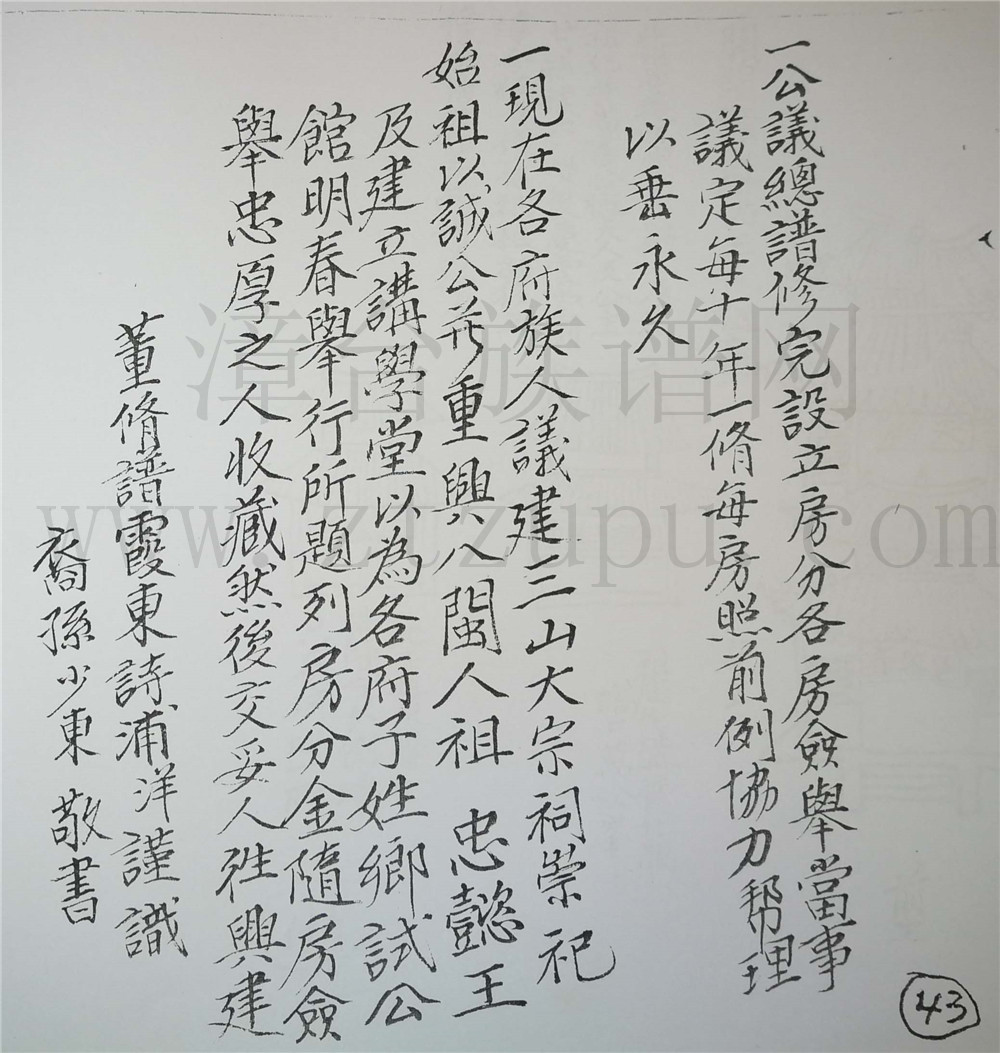 一公議總譜修完設立房分各房僉舉當事
議定每十年一脩每房照前例協力幫理
以垂永久
一現在各府族人議建三山大宗祠崇祀
始祖以誠公並重興八閩人祖 忠懿王
及建立講學堂以為各府子姓鄉試公
館明春舉行所題列房分金隨房僉
舉忠厚之人收藏然後交妥人往興建
董脩譜霞東詩浦洋謹識
裔孫少東 敬書
43
漳台族谱网
www.ztzupu.com